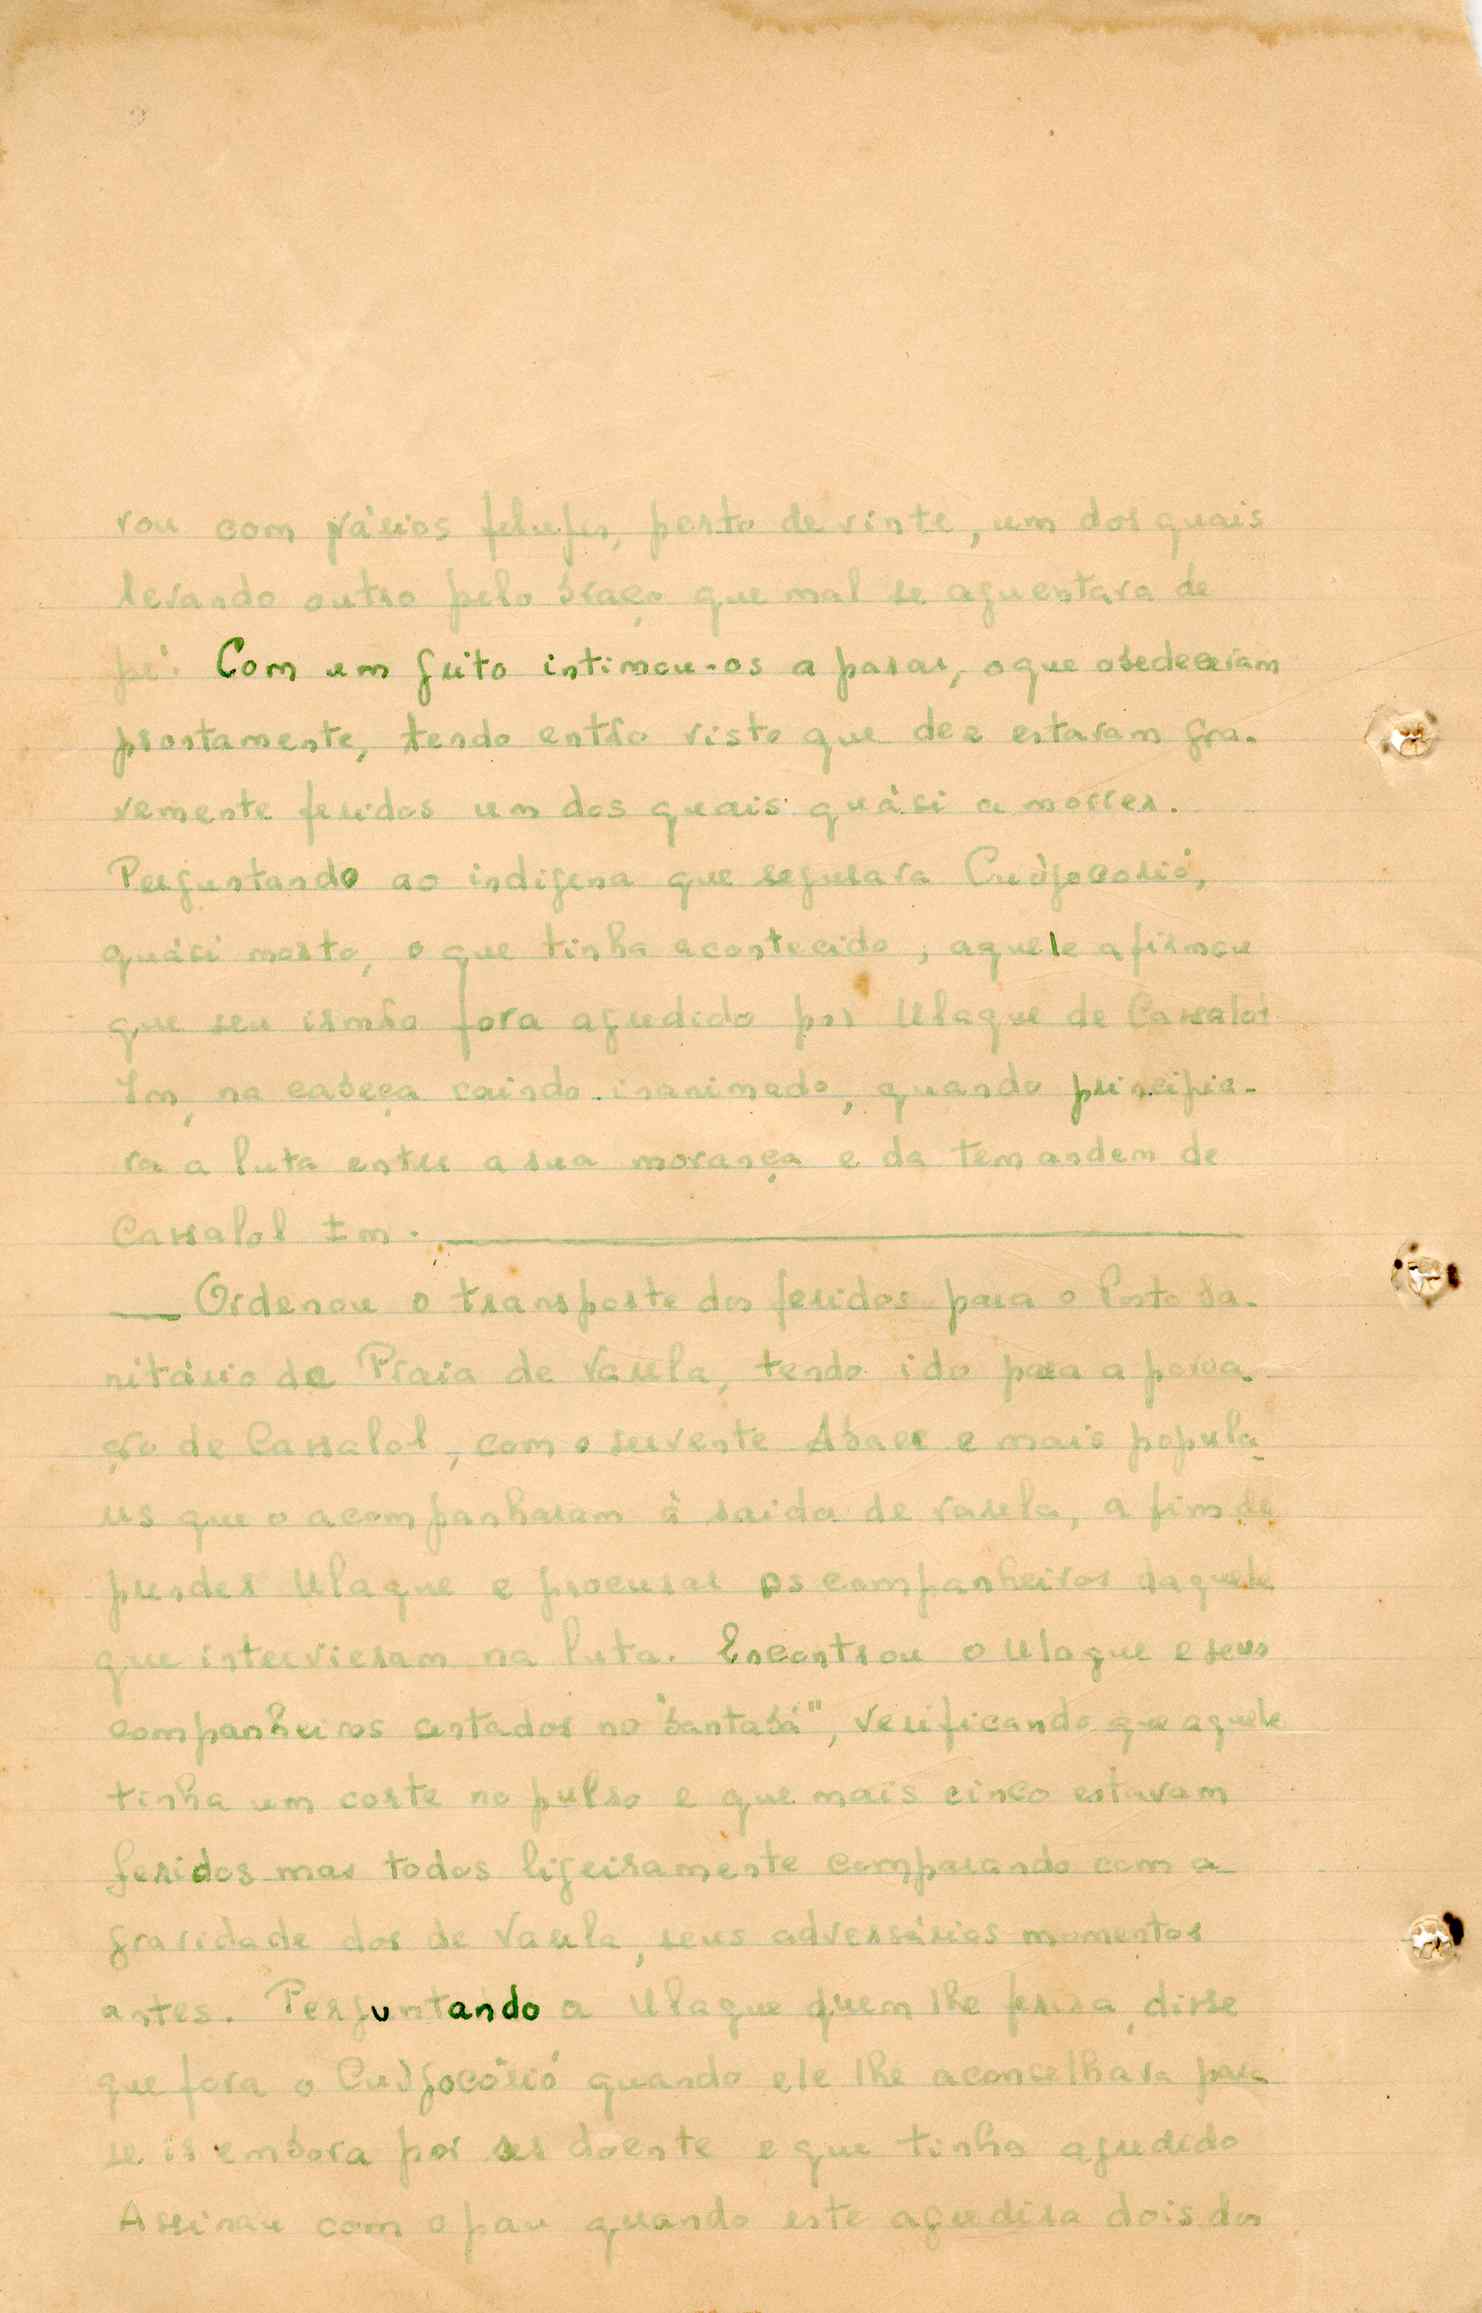 rou com vários felupes, perto de vinte, um dos quais
levando outro pelo braço que mal se aguentava de
pé. Com um grito intimou-os a parar, o que obedeceram
prontamente, tendo então visto que dez estavam gra-
vemente feridos um dos quais quási a morrer.
Perguntando ao indigena que segurava Cudjocorió,
quási morto, o que tinha acontecido, aquele afirmou
que seu irmão fora agredido por Ulaque de Cassalol
Im, na cabeça caindo inanimado, quando principia-
ra a luta entre a sua morança e da temandem de
Cassalol Im.
Ordenou o transporte dos feridos para o Posto Sa-
nitário de Praia de Varela, tendo ido para a povoa-
ção de Cassalol, com o servente Abace e mais popula-
res que o acompanharam à saida de Varela, a fim de
prender Ulaque e procurar os companheiros daquele
que intervieram na luta. Encontrou o Ulaque e seus
companheiros sentados no "bantabá", verificando que aquele
tinha um corte no pulso e que mais cinco estavam
feridos mas todos ligeiramente comparando com a
gravidade dos de Varela, seus adversários momentos
antes. Perguntando a Ulaque quem lhe ferira, disse
que fora o Cudjocórió quando ele lhe aconselhara para
se ir embora por ser doente e que tinha agredido
Assinau com o pau quando este agredira dois dos